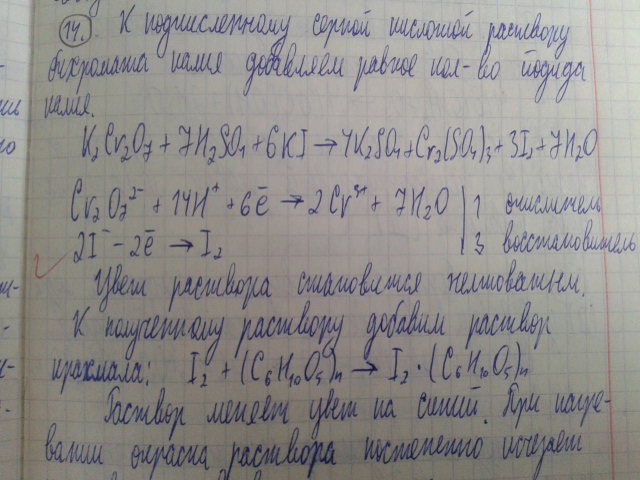 14. К подкисленному серной кислотой раствору
бихромата калия добавляем равное кол-во йодида
калия.
K₂Cr₂O₇ + 7H₂SO₄ + 6KI → 4K₂SO₄ + Cr₂(SO₄)₃ + 3I₂ + 7H₂O
Cr₂O₇²⁻ + 14H⁺ + 6ē → 2Cr³⁺ + 7H₂O | 1 окислитель
2I⁻ - 2ē → I₂ | 3 восстановитель
Цвет раствора становится желтоватым.
К полученному раствору добавим раствор
крахмала: I₂ + (C₆H₁₀O₅)n → I₂·(C₆H₁₀O₅)n
Раствор меняет цвет на синий. При нагре-
вании окраска раствора постепенно исчезает